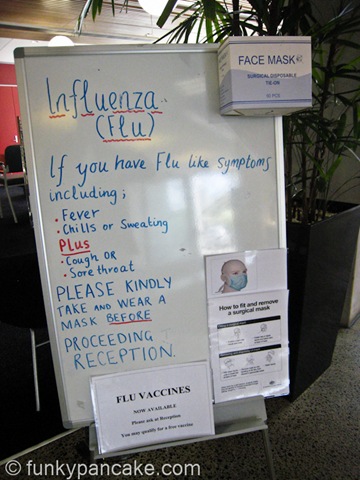 FACE MASK
SURGICAL DISPOSABLE
TIE-ON
50 PCS
Influenza
(Flu)
If you have Flu like symptoms
including;
• Fever
• Chills or Sweating
Plus
• Cough OR
• Sore throat
PLEASE KINDLY
TAKE AND WEAR A
MASK BEFORE
PROCEEDING
RECEPTION.
How to fit and remove
a surgical mask
FLU VACCINES
NOW AVAILABLE
Please ask at Reception
You may qualify for a free vaccine
© funkypancake.com